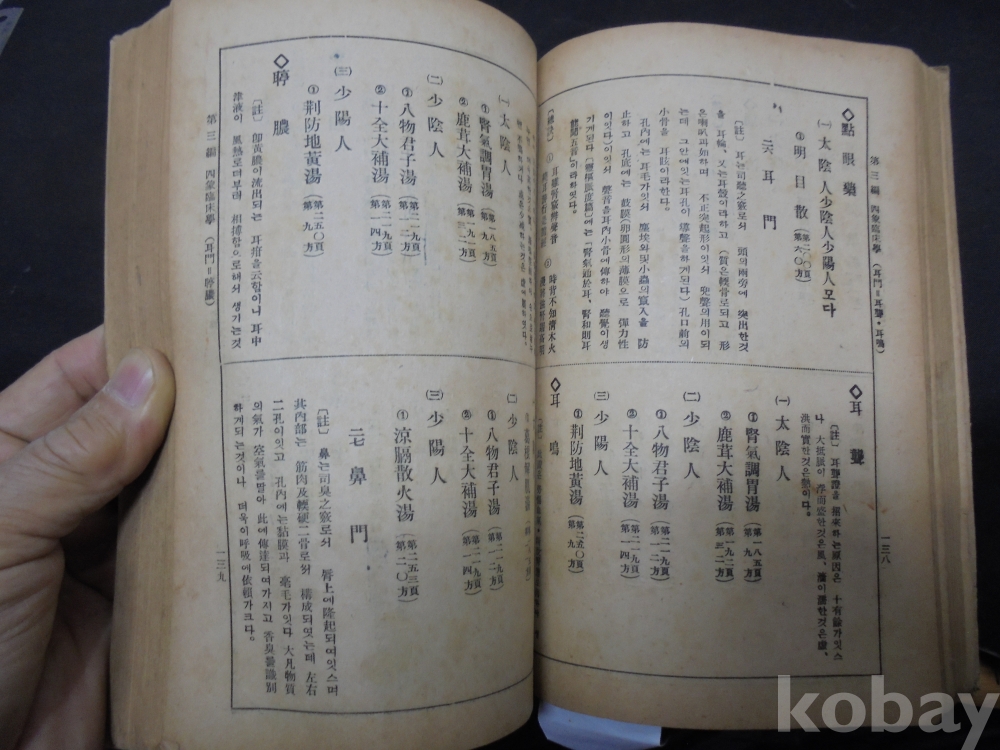 第三編 四象臨床學 (耳門=耳聾・耳鳴)
一三八
◇點眼藥
㈠ 太陰人少陰人少陽人모다
①明目散
二六 耳門
[註] 耳는司聽之竅로쇠 頭의兩旁에 突出한것
을 耳輪、又는耳殼이라하고 (質은軟骨로되고 形
은喇叭과如하며 不正突起形이잇쇠 兜聲의用이되
는데 그안에잇는耳孔이 導聲을하게된다) 孔口前의
小骨을 耳珁이라한다。
孔內에는 耳毛가잇쇠 塵埃와及小蟲의竄入을 防
止하고 孔底에는 鼓膜(卵圓形의薄膜으로 彈力性
이잇다)이잇쇠 聲音을耳內小骨에傳하야 聽覺이생
기게된다 (靈樞脈度篇)에는「腎氣通於耳、腎和則耳
能聞五音」이라하엿다。
◇耳聾
[註] 耳聾證을 招來하는原因은 十有餘가잇스
나、大抵脈이 浮而盛한것은風、
洪而實한것은熱이다。
㈠ 太陰人
①腎氣調胃湯 (第一八五頁 第九一方)
②鹿茸大補湯
㈡ 少陰人
①八物君子湯 (第二一九頁 第一二方)
②十全大補湯 (第二一九頁 第一四方)
㈢ 少陽人
①荊防地黃湯 (第二五〇頁 第九方)
◇耳鳴
㈠ 太陰人
①腎氣調胃湯 (第一八五頁 第九一方)
②鹿茸大補湯
㈡ 少陰人
①八物君子湯 (第二一九頁 第一二方)
②十全大補湯 (第二一九頁 第一四方)
㈢ 少陽人
①荊防地黃湯 (第二五〇頁 第九方)
◇聤膿
[註] 卽黃膿이流出되는 耳疳을云함이니 耳中
津液이 風熱로더부러 相搏함으로해쇠 생기는것
㈡ 少陰人
①八物君子湯 (第二一九頁 第一二方)
②十全大補湯 (第二一九頁 第一四方)
㈢ 少陽人
①涼膈散火湯 (第二五三頁 第二〇方)
二七 鼻門
[註] 鼻는司臭之竅로쇠 唇上에隆起되여잇스며
其內部는 筋肉及軟硬二骨로쇠 構成되엿는데 左右
二孔이잇고 孔內에는黏膜과 毫毛가잇다 大凡物質
의氣가 空氣를딸아 此에傳達되여가지고 香臭를識別
하게되는것이나 더욱이呼吸에依賴가크다。
第三編 四象臨床學 (耳門=聤膿)
一三九
kobay